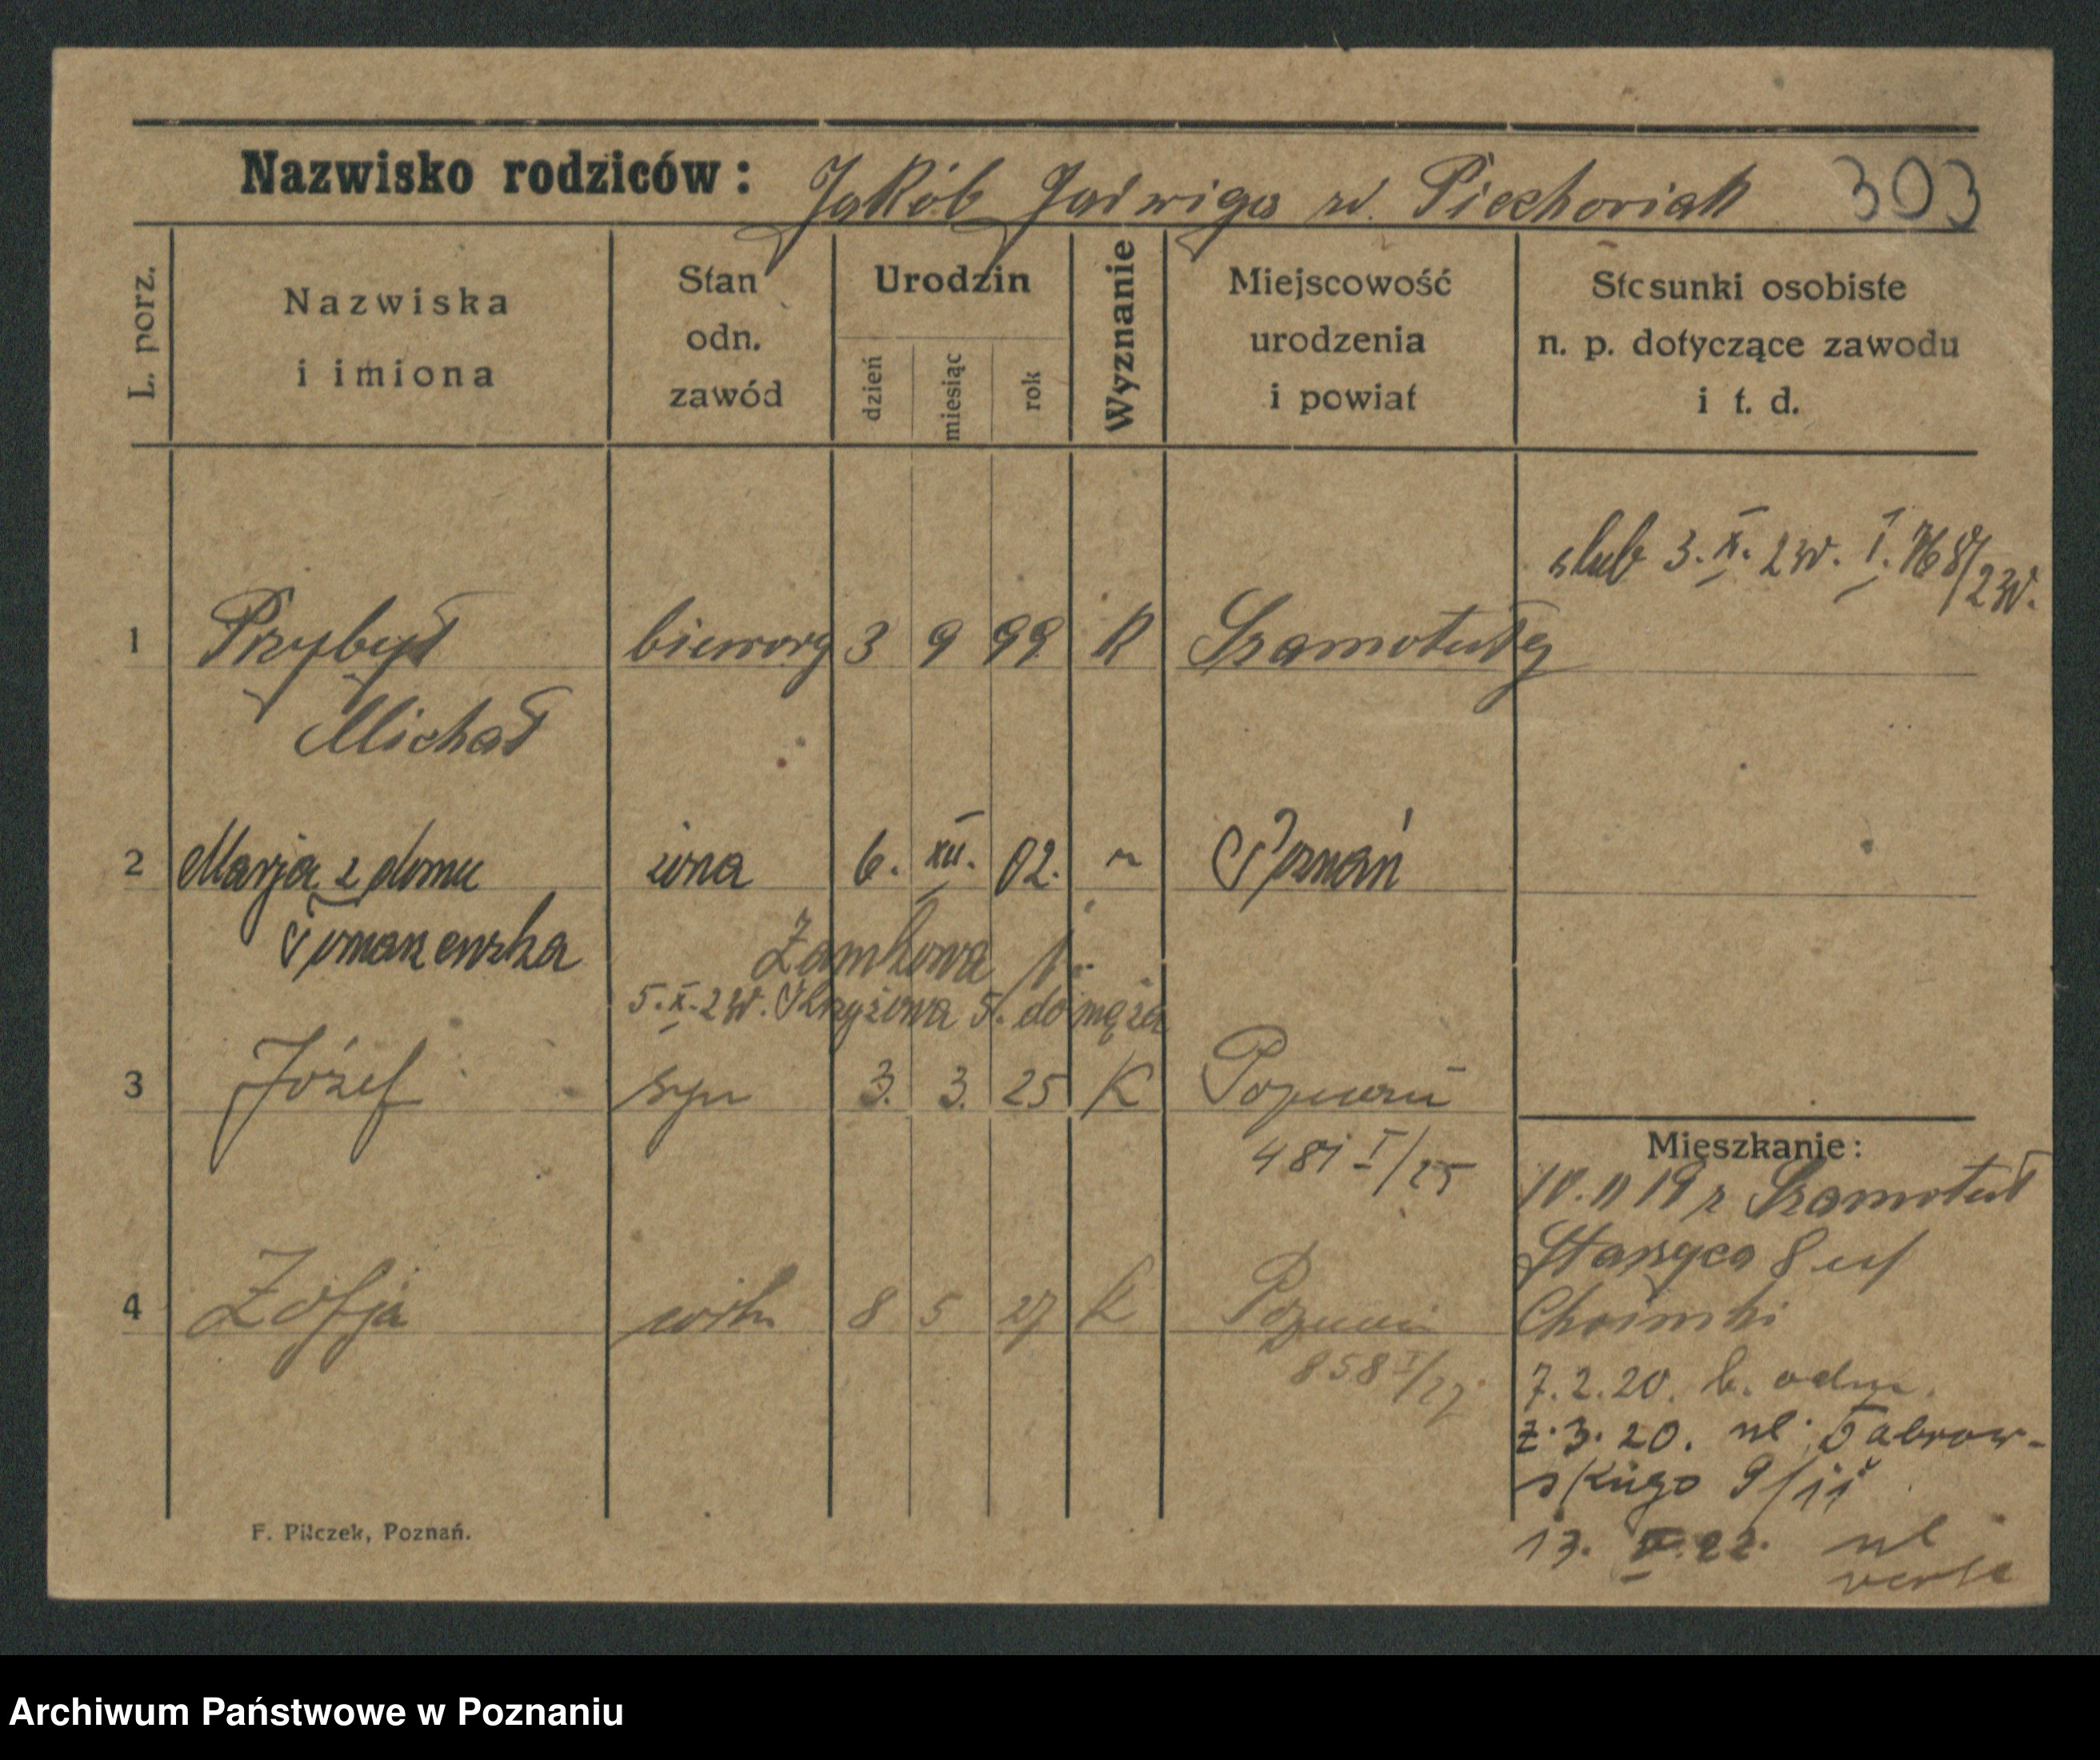 Nazwisko rodziców: Jakób Jadwiga zd. Piechoriak 303
L. porz.
Nazwiska i imiona
Stan odn. zawód
Urodzin
dzień
miesiąc
rok
Wyznanie
Miejscowość urodzenia i powiat
Stosunki osobiste n. p. dotyczące zawodu i t. d.
ślub 3. X. 23r. I. 768/23r.
1 Przybył 3 9 99 K Szamotuły
Michał
2 Marja z domu żona 6. XII. 02. " Poznań
Tomaszewska
Zamkowa
5. X. 23r. Krzyżowa 5. do męża
3 Józef syn 3. 3. 25 K Poznań
481 I/25
4 Zofja 8 5 27 K Poznań
858 I/27
Mieszkanie:
10. 11 19 z Szamotuł
8
7. 2. 20. b. odm.
2. 3. 20. ul. Dabrow-
skiego 9/II
13. 22. ul
F. Pilczek, Poznań.
Archiwum Państwowe w Poznaniu